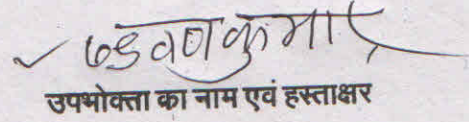 कुमार
उपभोक्ता का नाम एवं हस्ताक्षर